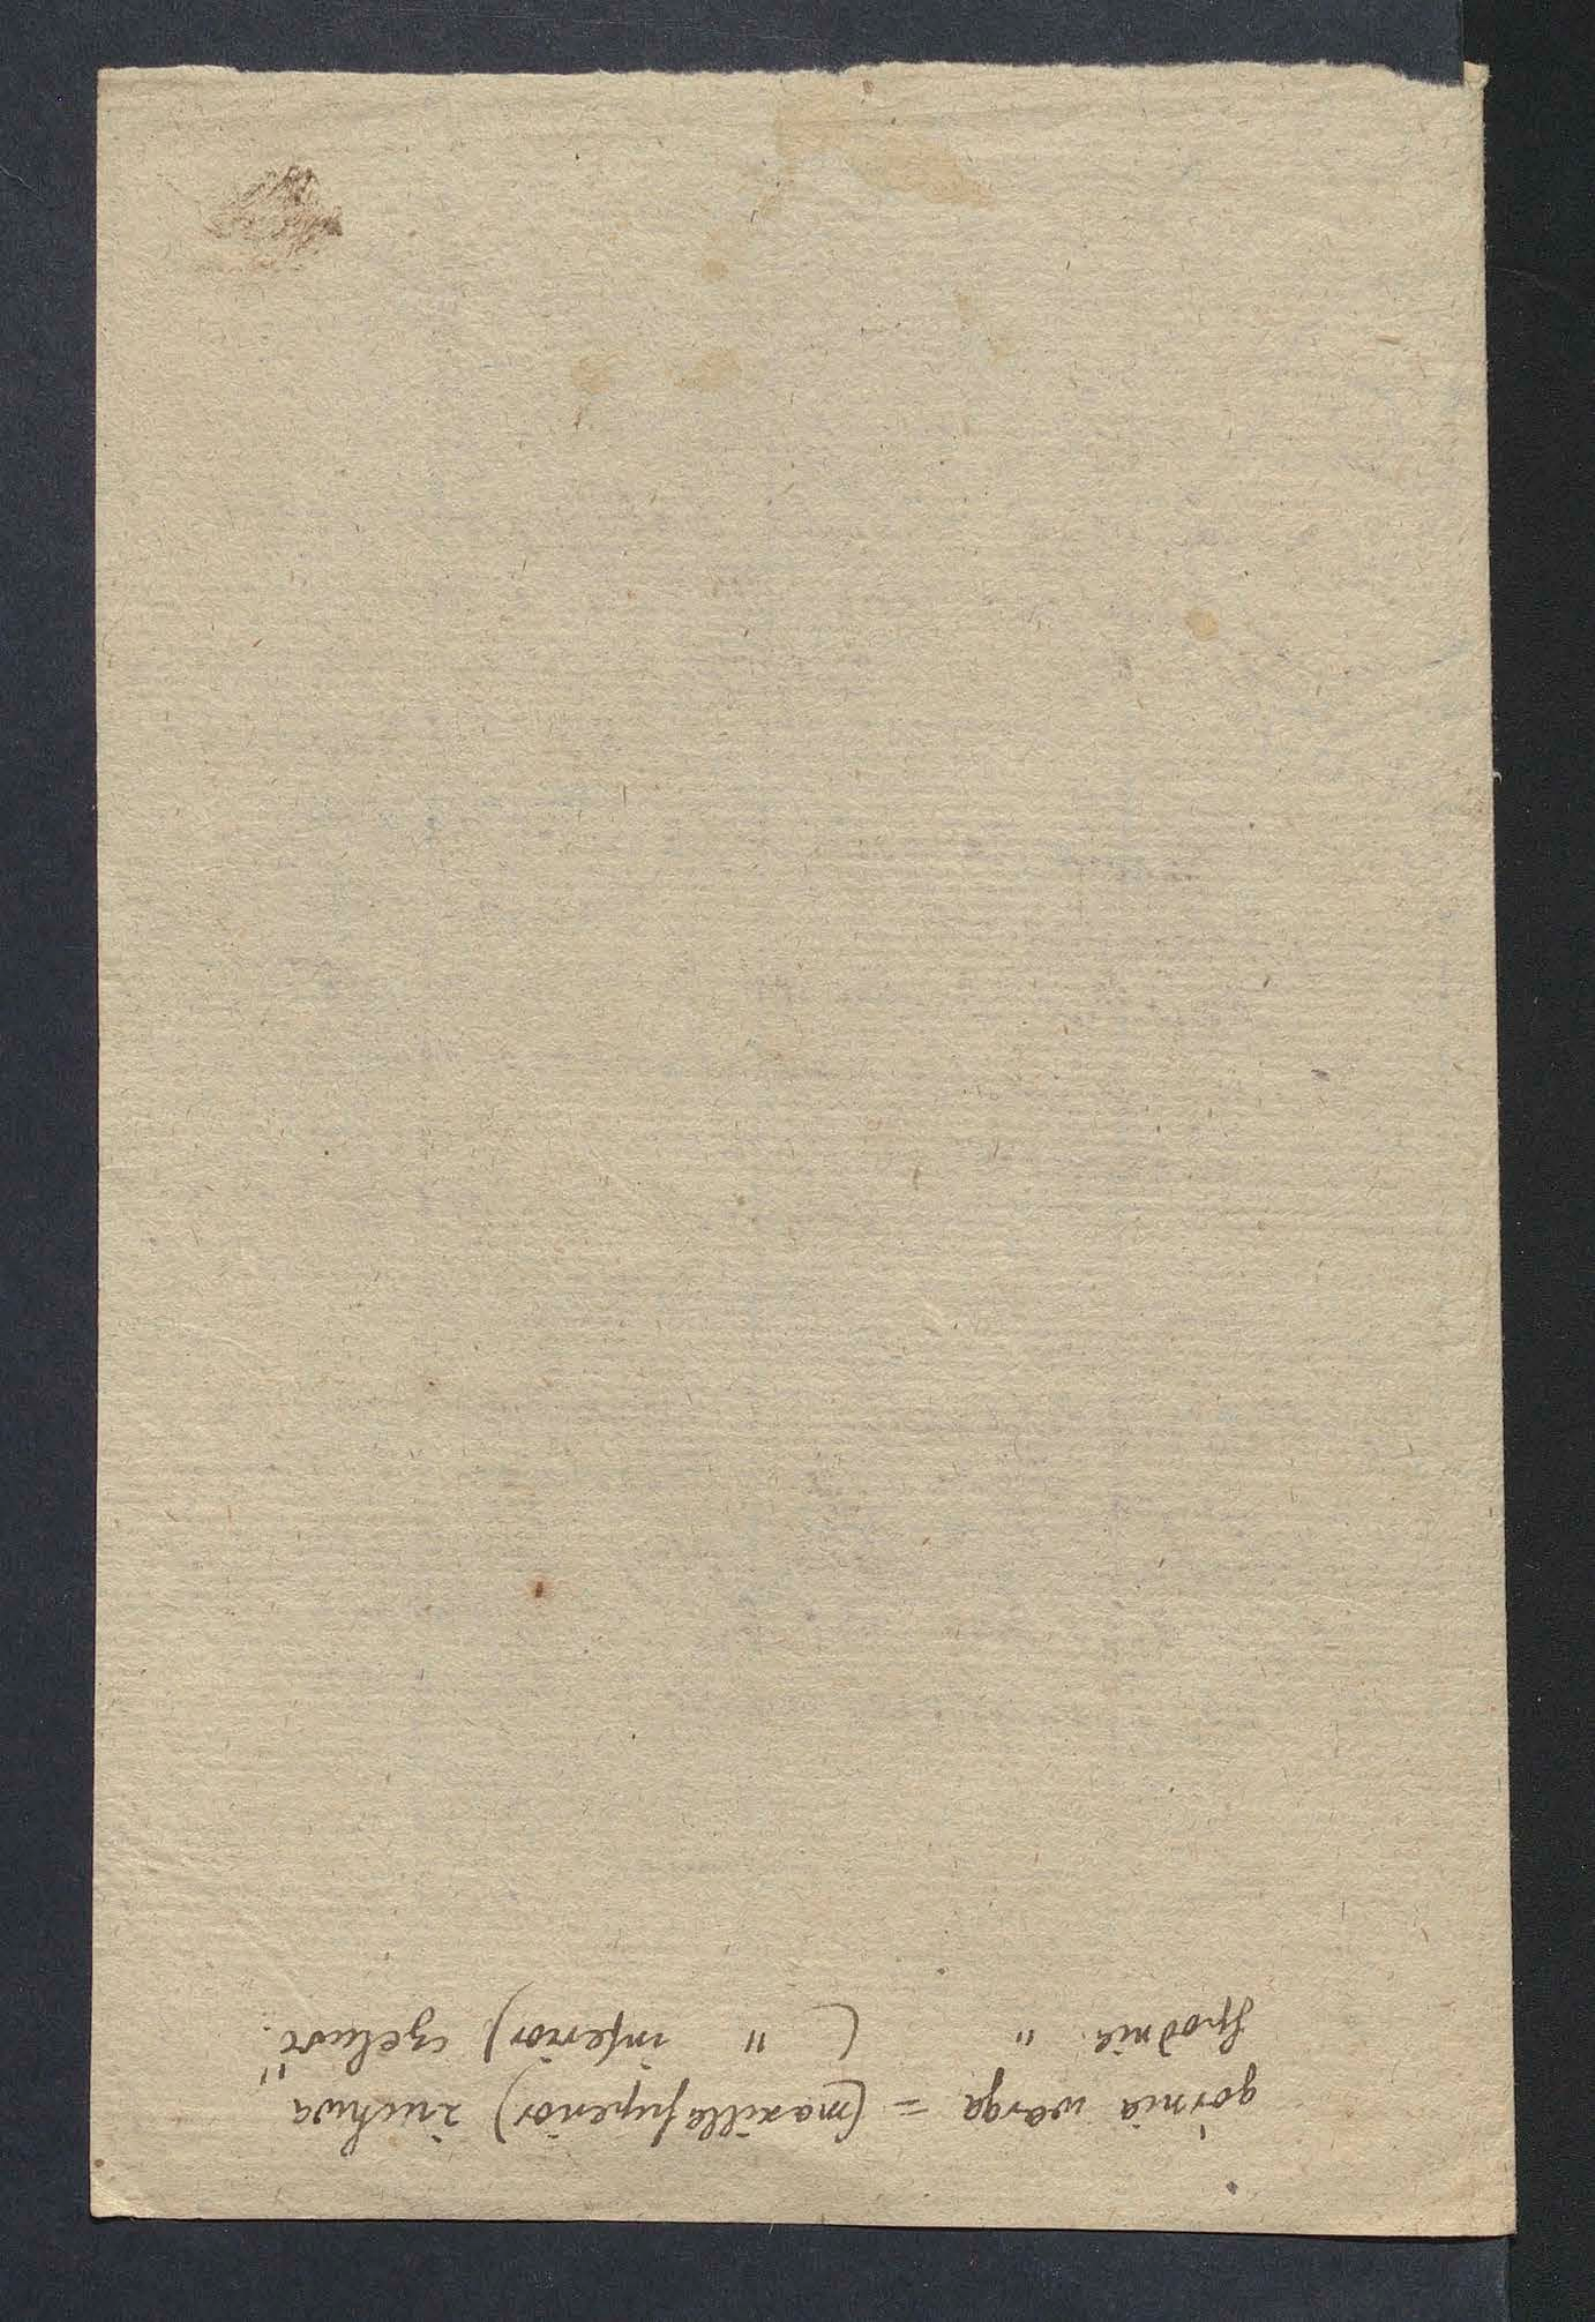 górnia warga = (maxilla superior) żuchwa
spodnia " ( " inferior) czeluść "